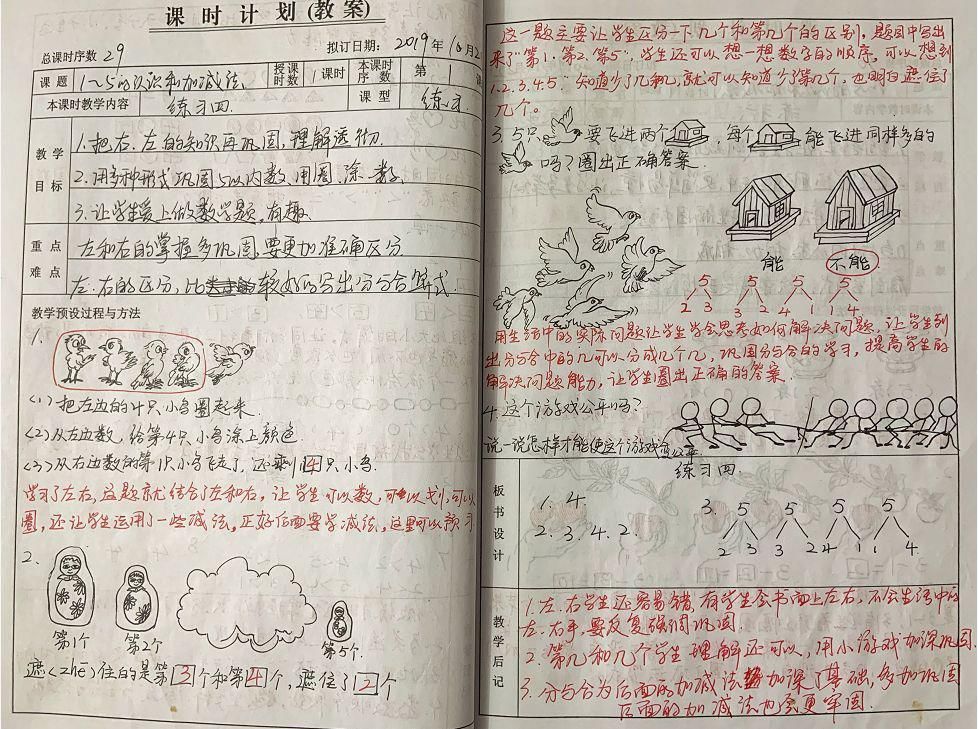 课时计划(教案)
总课时序数 29 拟订日期: 2019年10月2
课题 1~5的认识和加减法 授课时数 1课时 本课时序数 第1
本课时教学内容 练习四 课型 练习
教学目标
1.把右、左的知识再巩固,理解透彻.
2.用多种形式巩固5以内数,用圈、涂、数.
3.让学生爱上做数学题,有趣.
重点难点
左和右的掌握多巩固,要更加准确区分
左、右的区分,比较好的写出分与合算式.
教学预设过程与方法
1.
<1>把左边的4只小鸟圈起来.
<2>从左边数,给第4只小鸟涂上颜色.
<3>从右边数的第1只小鸟飞走了,还剩4只小鸟.
学习了左右,这题就结合了左和右,让学生可以数,可以划,可以
圈,还让学生运用了一些减法,正好后面要学减法,这里可以预习
2.
第1个 第2个 第5个.
遮<zhē>住的是第3个和第4个,遮住了2个
这一题主要让学生区分一下几个和第几个的区别,题目中写出
来了"第1、第2、第5",学生还可以想一想数字的顺序,可以想到
1.2.3.4.5.知道少了几和几,就可以知道少了第几个,也明白遮住了
几个.
3.5只 要飞进两个 ,每个 能飞进同样多的
吗?圈出正确答案.
能 不能
5 5 5 5
2 3 3 2 4 1 1 4
用生活中的实际问题让学生学会思考如何解决问题,让学生列
出分与合中的几可以分成几个几,巩固分与合的学习,提高学生的
解决问题能力,让学生圈出正确的答案.
4.这个游戏公平吗?
说一说怎样才能使这个游戏变公平
板书设计
练习四
1. 4.
2. 3. 4. 2.
3. 5 5 5 5
2 3 3 2 4 1 1 4
教学后记
1.左、右学生还容易错,有学生会书面上左右,不会生活中的
左、右手,要反复强调巩固.
2.第几和几个学生理解还可以,用小游戏加深巩固.
3.分与合为后面的加减法加深了基础,多加巩固
后面的加减法也会更牢固.